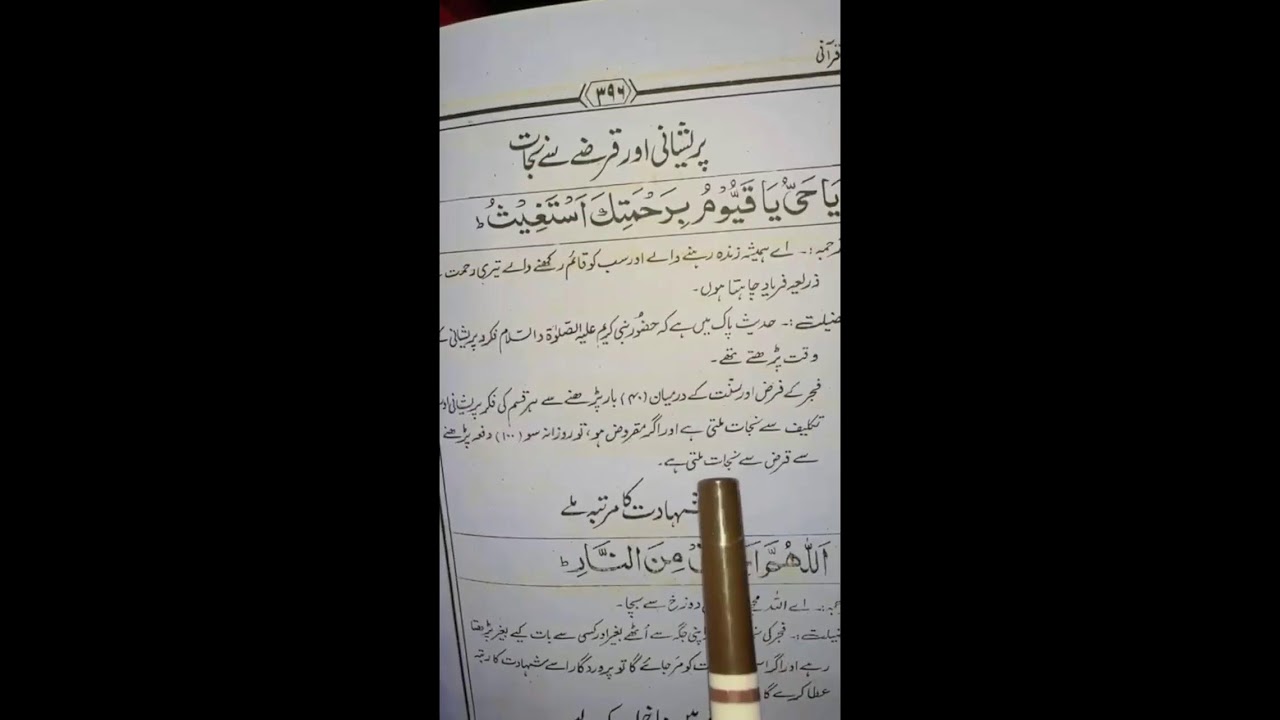 قرآنی
۳۹۶
پریشانی اور قرضے سے نجات
یَا حَیُّ یَا قَیُّوْمُ بِرَحْمَتِكَ اَسْتَغِیْثُ ط
ترجمہ :۔ اے ہمیشہ زندہ رہنے والے اور سب کو قائم رکھنے والے تیری رحمت
ذریعہ فریاد چاہتا ہوں۔
فضیلت :۔ حدیث پاک میں ہے کہ حضور نبی کریم علیہ الصّلوٰۃ والسّلام فکر و پریشانی کے
وقت پڑھتے تھے۔
فجر کے فرض اور سنّت کے درمیان (۴۰) بار پڑھنے سے ہر قسم کی فکر پریشانی اور
تکلیف سے نجات ملتی ہے اور اگر مقروض ہو، تو روزانہ سو (۱۰۰) دفعہ پڑھنے
سے قرض سے نجات ملتی ہے۔
شہادت کا مرتبہ ملے
اَللّٰهُمَّ مِنَ النَّارِ ط
اے اللہ دوزخ سے بچا۔
فضیلت :۔ فجر کی اپنی جگہ سے اُٹھے بغیر اور کسی سے بات کیے بغیر پڑھتا
رہے اور اگر کو مر جائے گا تو پروردگار اسے شہادت کا رتبہ
عطا کرے گا